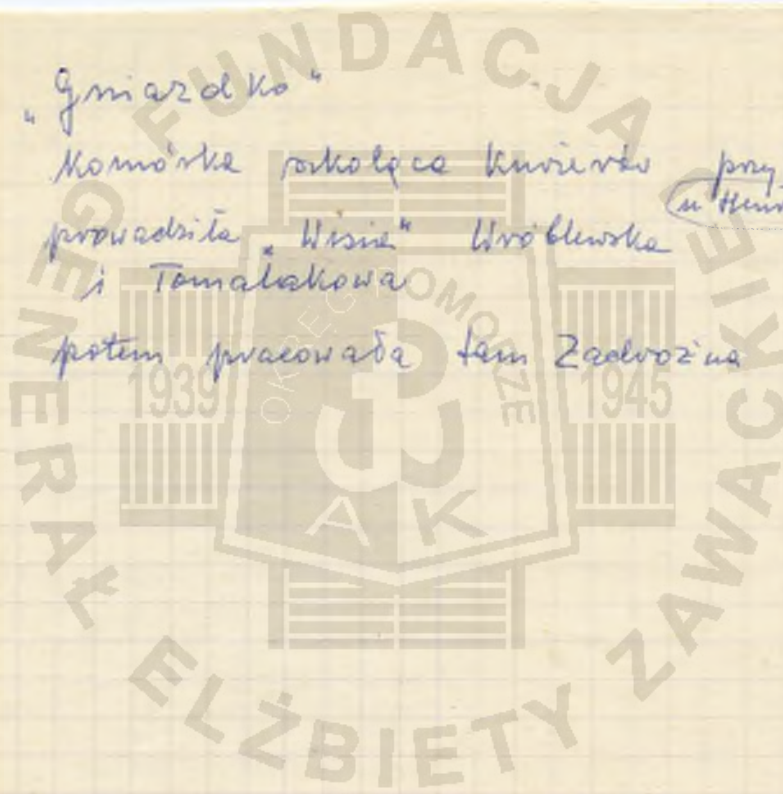 „Gniazdko"
Komórka szkoląca kurierów przy
prowadziła „Wisia" Wróblewska
i Tomalakowa
potem pracowała tam Zadrożna
FUNDACJA
GENERAŁ ELŻBIETY ZAWACKIEJ
OKRĘG POMORZE
1939 1945
AK